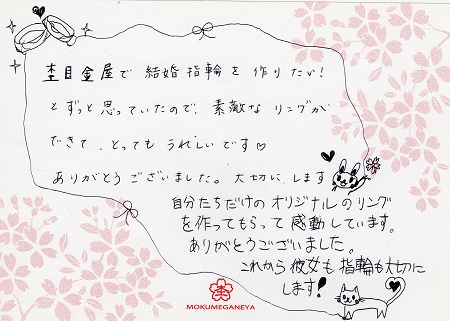 杢目金屋で結婚指輪を作りたい！
とずっと思っていたので、素敵なリングが
できて、とってもうれしいです♡
ありがとうございました。大切にします
自分たちだけのオリジナルのリング
を作ってもらって感動しています。
ありがとうございました。
これから彼女も指輪も大切に
します！
MOKUMEGANEYA